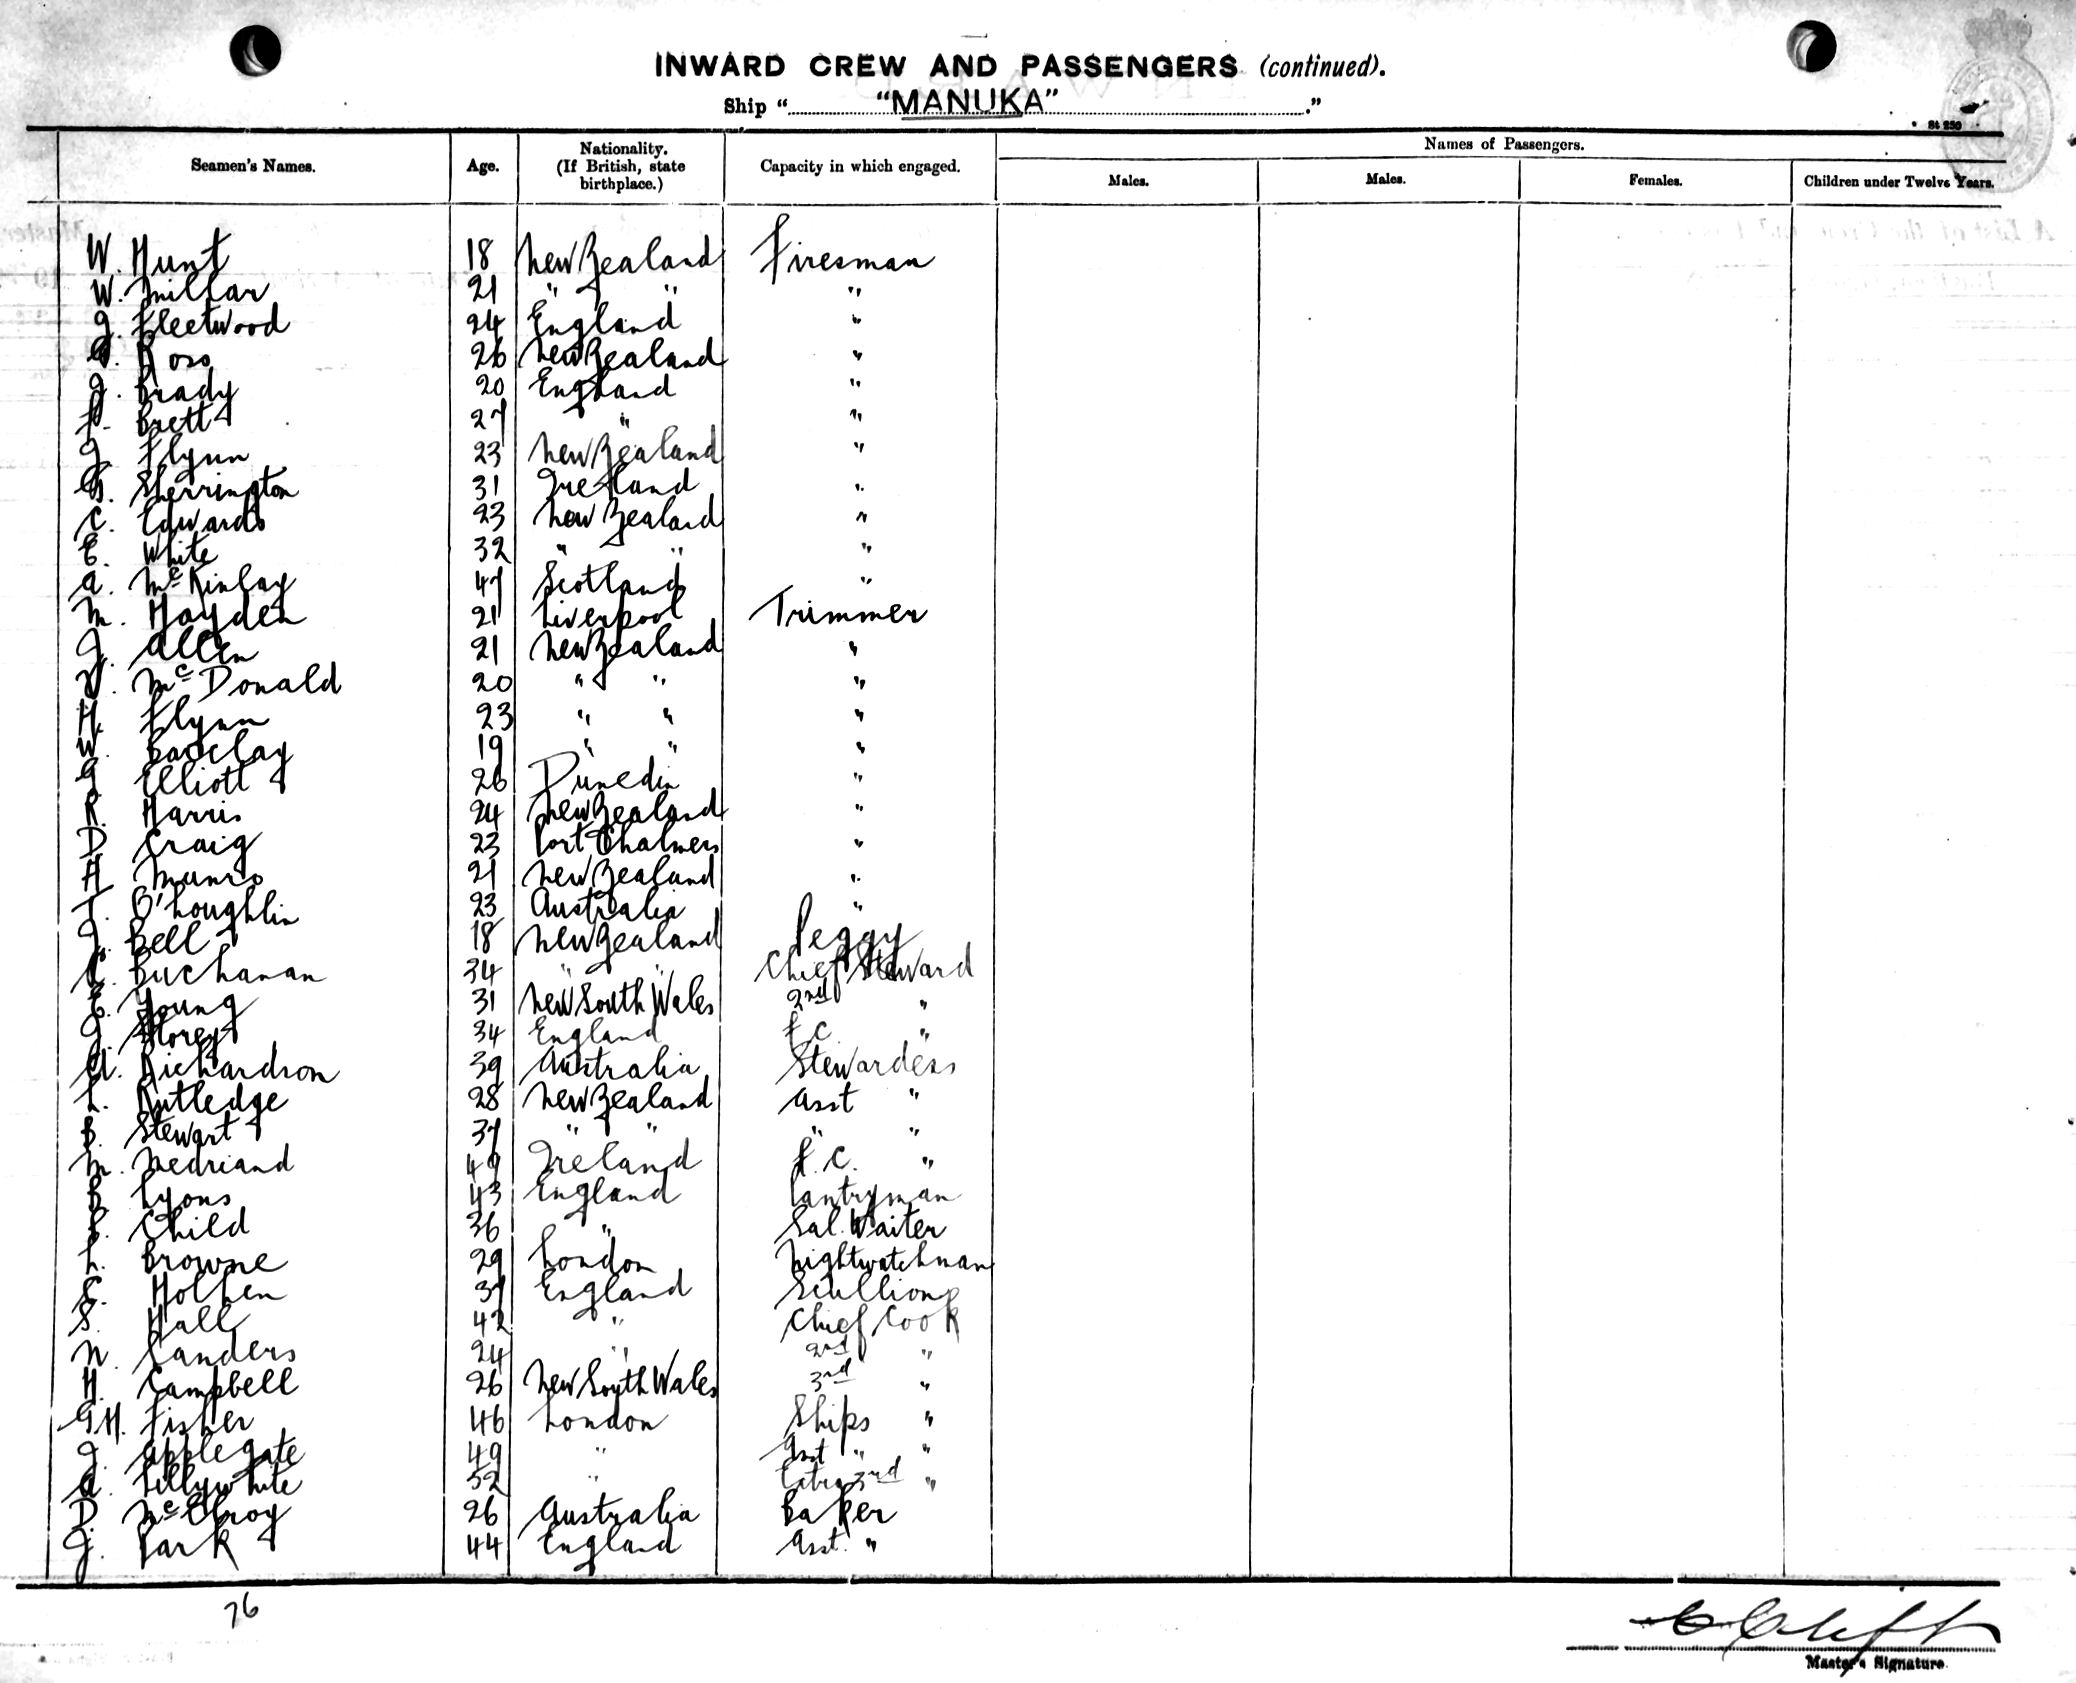 INWARD CREW AND PASSENGERS (continued).
Ship "MANUKA"
St 250
Seamen's Names. Age. Nationality. (If British, state birthplace.) Capacity in which engaged. Names of Passengers.
Males. Males. Females. Children under Twelve Years.
W. Hunt 18 New Zealand Firesman
W. Millar 21 " " "
J. Fleetwood 24 England "
G. Ross 26 New Zealand "
J. Brady 20 England "
F. Brett 27 " "
J. Flynn 23 New Zealand "
G. Sherrington 31 Ireland "
C. Edwards 23 New Zealand "
E. White 32 " " "
A. McKinlay 47 Scotland "
M. Hayden 21 Liverpool Trimmer
J. Allen 21 New Zealand "
McDonald 20 " " "
H. Flynn 23 " " "
W. Barclay 19 " " "
G Elliott 26 Dunedin "
R. Harris 24 New Zealand "
D Craig 23 Port Chalmers "
H Munro 21 New Zealand "
T. O'Loughlin 23 Australia "
J. Bell 18 New Zealand Peggy
Buchanan 34 " " Chief Steward
E. Young 31 New South Wales 2nd "
J. Storey 34 England F.C. "
A. Richardson 39 Australia Stewardess
L. Rutledge 28 New Zealand Asst "
B. Stewart 37 " " " "
M. 49 Ireland F.C. "
Lyons 43 England Pantryman
Child 36 " Sal. Waiter
L. Browne 29 London Nightwatchman
E. 37 England Scullion
S. Hall 42 " Chief Cook
N. Sanders 24 " 2nd "
H. Campbell 26 New South Wales 3rd "
G.H. Fisher 46 London Ships "
J. Applegate 49 " Asst " "
A. Lillywhite 52 " Extra 3rd "
D. McElroy 26 Australia Baker
J. Park 44 England Asst. "
76
Master's Signature.